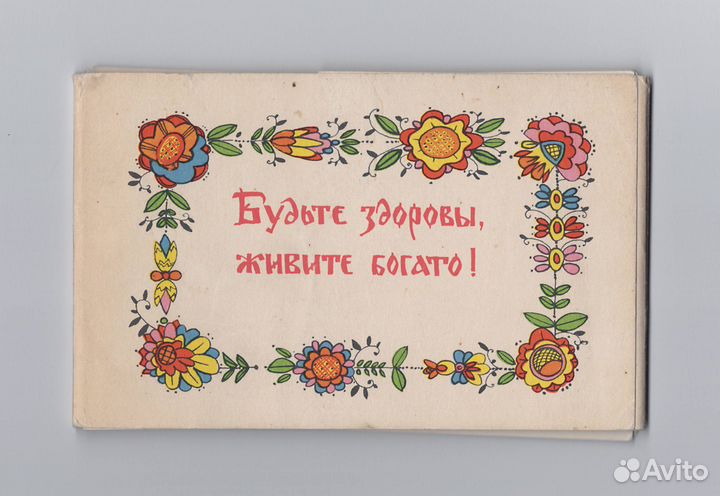 Будьте здоровы,
живите богато!
Avito